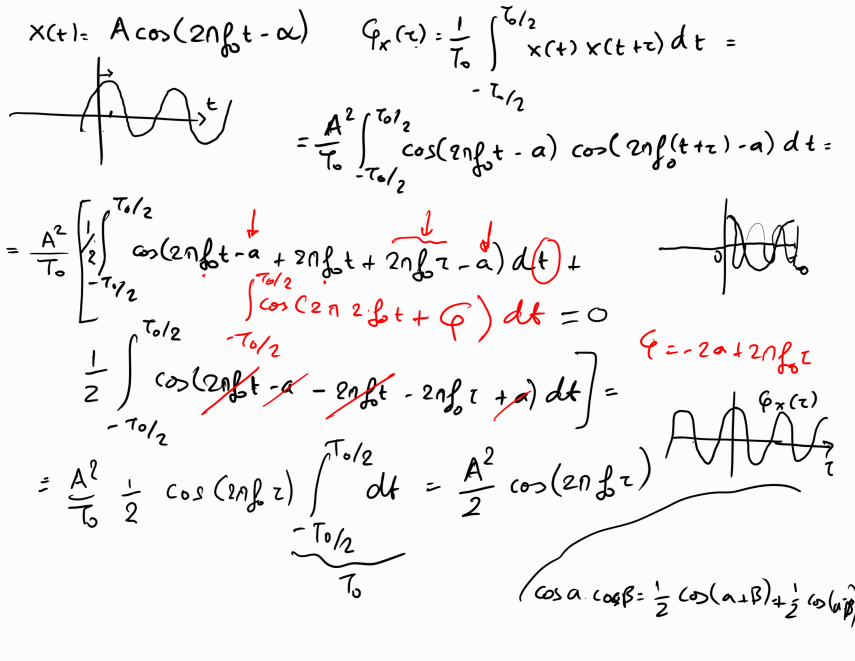 x(t) = A cos(2πf₀t - α)   φₓ(τ) = 1/T₀ ∫_{-T₀/2}^{T₀/2} x(t) x(t+τ) dt =
t
= A²/T₀ ∫_{-T₀/2}^{T₀/2} cos(2πf₀t - a) cos(2πf₀(t+τ) - a) dt =
= A²/T₀ [ 1/2 ∫_{-T₀/2}^{T₀/2} cos(2πf₀t - a + 2πf₀t + 2πf₀τ - a) dt +
0 T₀
∫_{-T₀/2}^{T₀/2} cos(2π 2f₀t + φ) dt = 0
φ = -2a + 2πf₀τ
1/2 ∫_{-T₀/2}^{T₀/2} cos(2πf₀t - a - 2πf₀t - 2πf₀τ + a) dt ] =
φₓ(τ)
τ
= A²/T₀ 1/2 cos(2πf₀τ) ∫_{-T₀/2}^{T₀/2} dt = A²/2 cos(2πf₀τ)
T₀
cos a · cos β = 1/2 cos(a+β) + 1/2 cos(a-β)